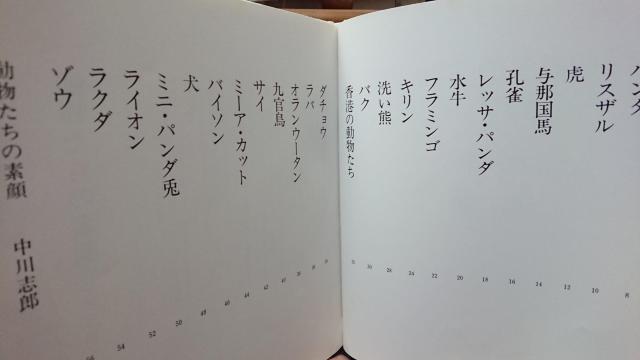 パンダ 8
リスザル 10
虎 12
与那国馬 14
孔雀 16
レッサ・パンダ 18
水牛 20
フラミンゴ 22
キリン 24
洗い熊 28
バク 30
香港の動物たち
ダチョウ
ラバ
オランウータン
九官鳥
サイ 42
ミーア・カット 44
バイソン 46
犬 48
ミニ・パンダ兎 50
ライオン 52
ラクダ 54
ゾウ 56
動物たちの素顔 中川志郎